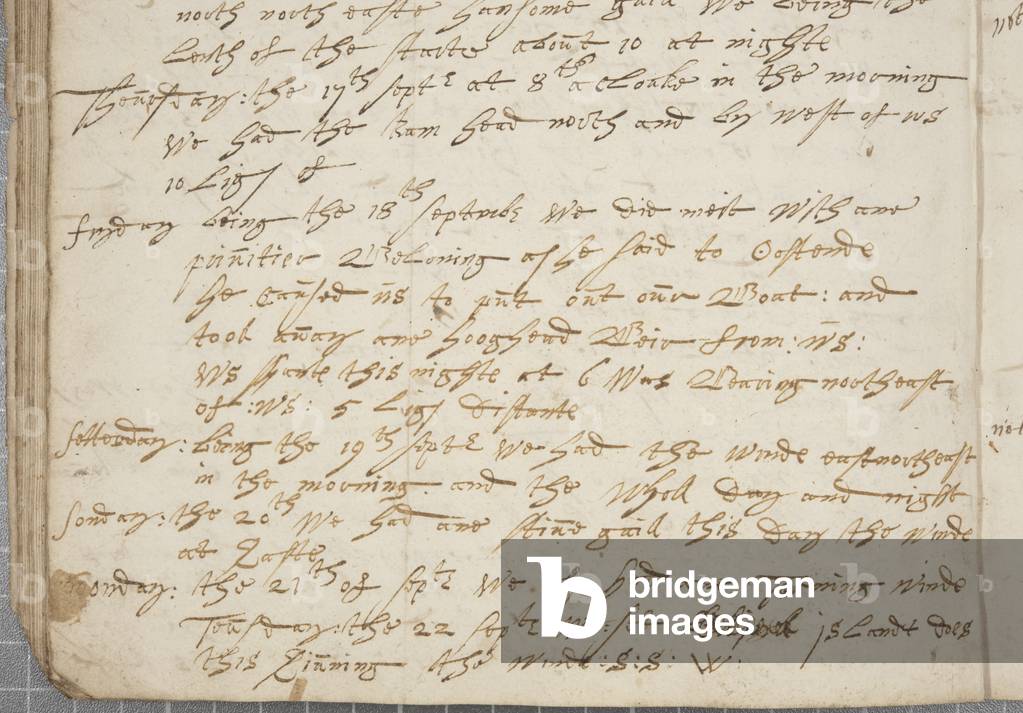 north north easte hansome gaill We being the
Lenth of the starte about 10 at nighte
Theursday: the 17th septr at 8th a cloake in the morning
We had the Ram head north and by west of us
10 Ligs of
fryday being the 18th septmbr We did meit With ane
priuitier Beloning as he said to Oostende
he Caused us to putt out our Boat: and
took away ane hooghead Beir from: us:
this nighte at 6 Was Bearing northeast
of: Ws: 5 Ligs distante
Setterday: being the 19th septr We had the Winde eastnortheast
in the morning and the Wholl day and night
Sonday: the 20th We had ane stiue gaill this day the Winde
at Easte
Moonday: the 21th of septr We winde
Teusday: the 22 sept islandt does
this Eiuning the Winde: S: S: W:
bridgeman
images